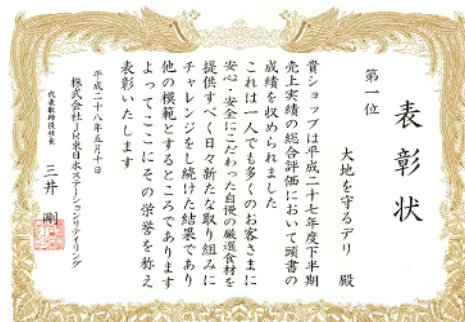 表彰状
大地を守るデリ 殿
第一位
貴ショップは平成二十七年度下半期
売上実績の総合評価において頭書の
成績を収められました
これは一人でも多くのお客さまに
安心・安全にこだわった自慢の厳選食材を
提供すべく日々新たな取り組みに
チャレンジをし続けた結果であり
他の模範とするところであります
よってここにその栄誉を称え
表彰いたします
平成二十八年五月十日
株式会社JR東日本ステーションリテイリング
代表取締役社長 三井 剛